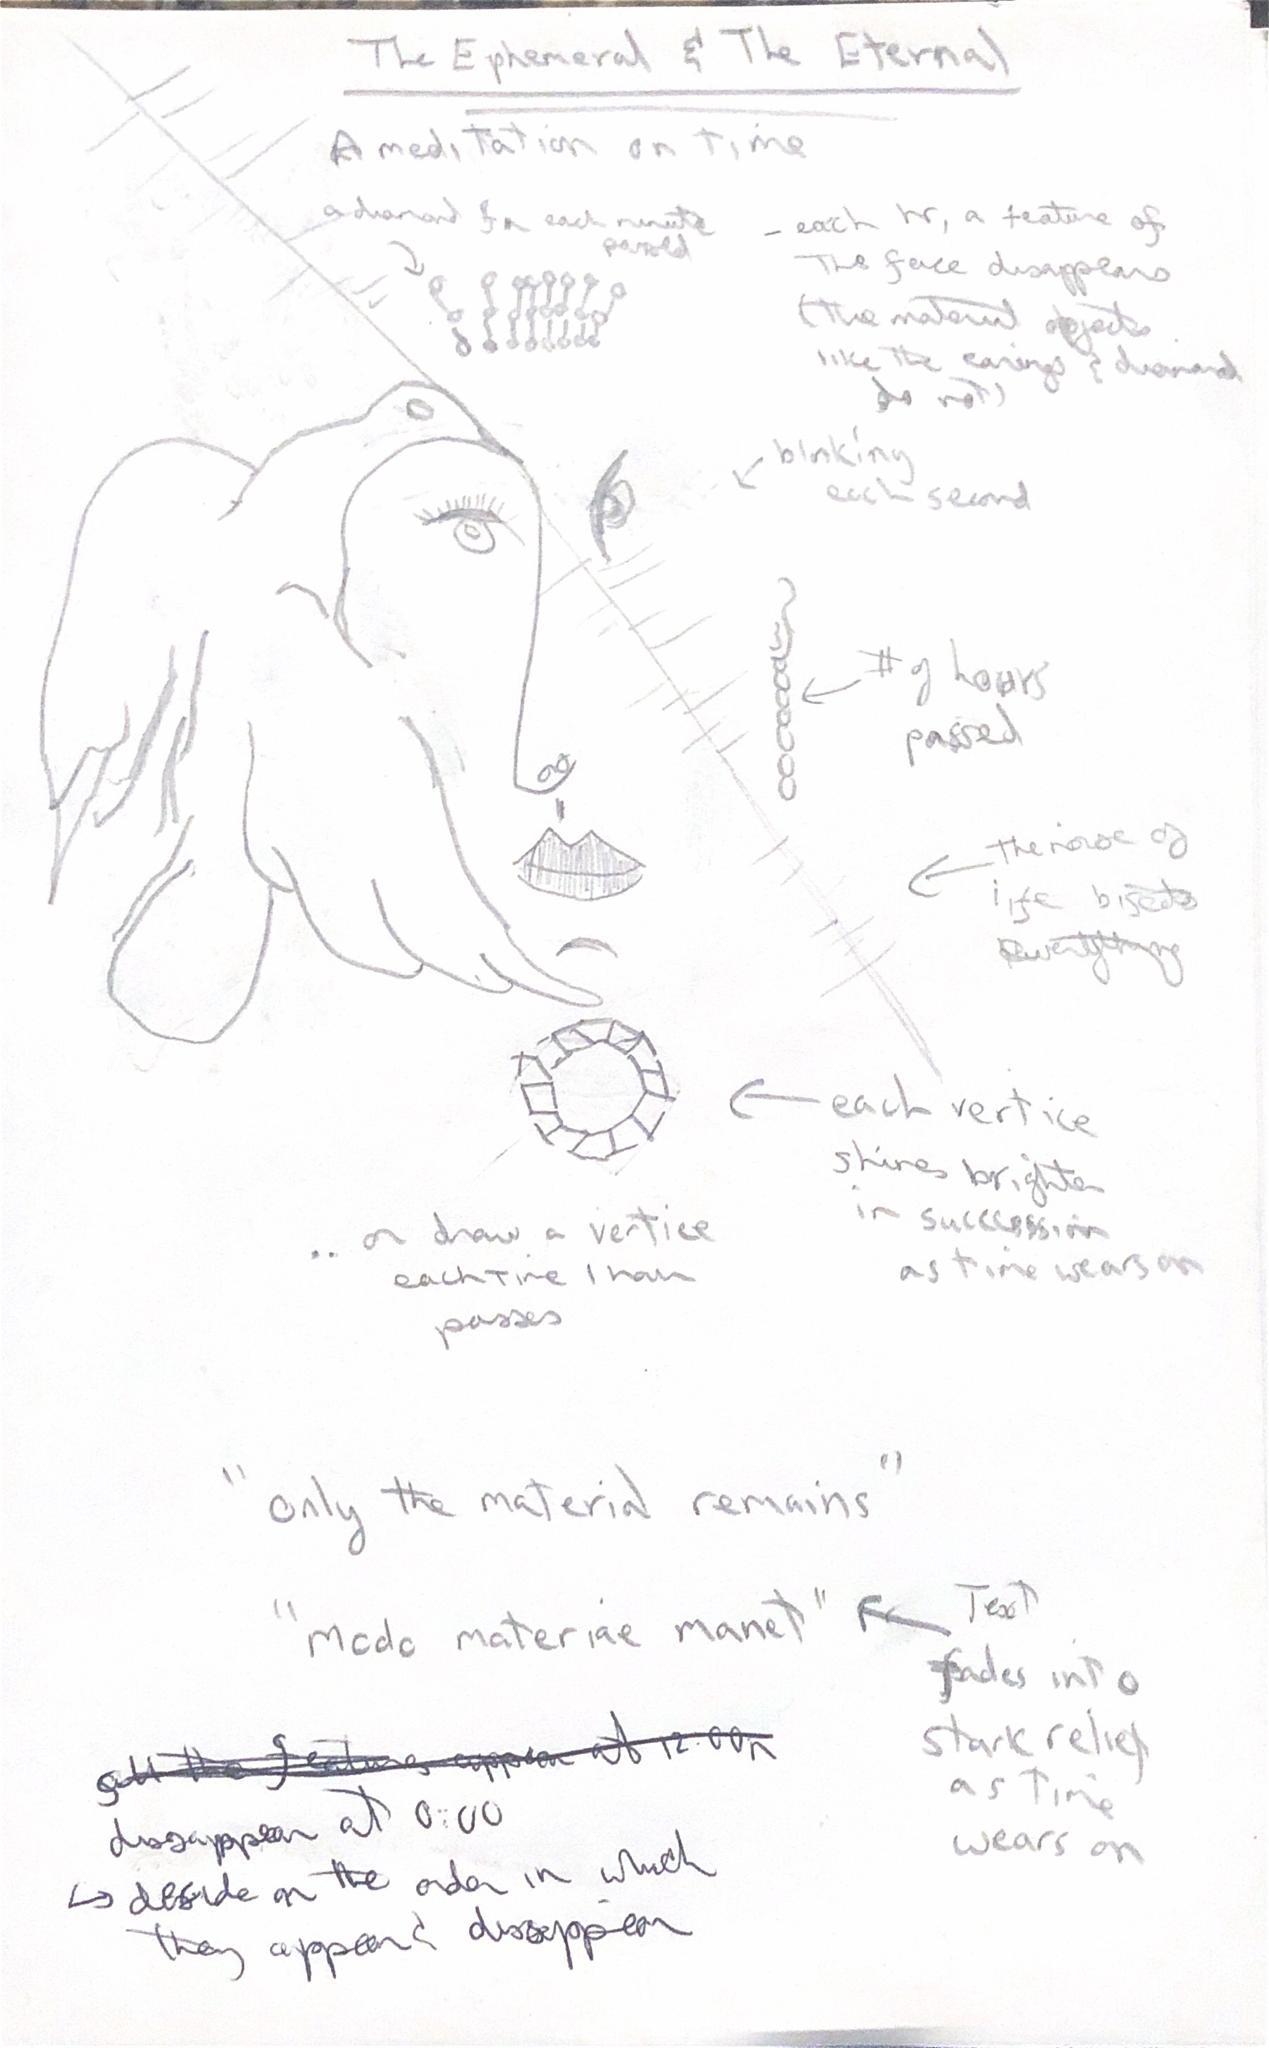 The Ephemeral & The Eternal
A meditation on time
a diamond for each minute
passed
- each hr, a feature of
the face disappears
(the material objects
like the earings & diamond
do not)
blinking
each second
# of hours
passed
the noise of
life bisects
everything
each vertice
shines brighter
in succession
as time wears on
.. or draw a vertice
each time 1 hour
passes
"only the material remains"
"modo materiae manet"
Text
fades into
stark relief
as time
wears on
all the features appear at 12:00
disappear at 0:00
↳ decide on the order in which
they appear & disappear